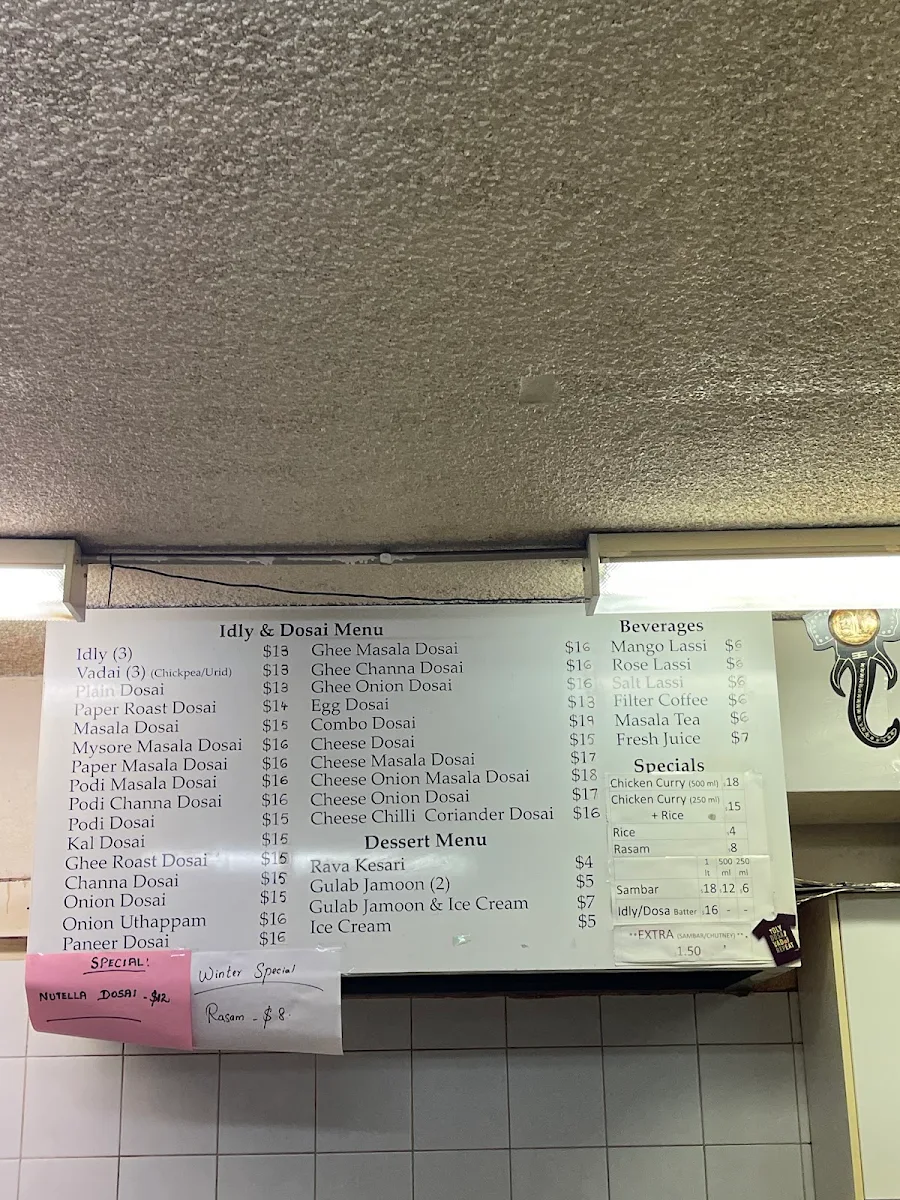 Idly & Dosai Menu
Idly (3) $13
Vadai (3) (Chickpea/Urid) $13
Plain Dosai $13
Paper Roast Dosai $14
Masala Dosai $15
Mysore Masala Dosai $16
Paper Masala Dosai $16
Podi Masala Dosai $16
Podi Channa Dosai $16
Podi Dosai $15
Kal Dosai $15
Ghee Roast Dosai $15
Channa Dosai $15
Onion Dosai $15
Onion Uthappam $16
Paneer Dosai $16
Ghee Masala Dosai $16
Ghee Channa Dosai $16
Ghee Onion Dosai $16
Egg Dosai $13
Combo Dosai $19
Cheese Dosai $15
Cheese Masala Dosai $17
Cheese Onion Masala Dosai $18
Cheese Onion Dosai $17
Cheese Chilli Coriander Dosai $16
Dessert Menu
Rava Kesari $4
Gulab Jamoon (2) $5
Gulab Jamoon & Ice Cream $7
Ice Cream $5
Beverages
Mango Lassi $6
Rose Lassi $6
Salt Lassi $6
Filter Coffee $6
Masala Tea $6
Fresh Juice $7
Specials
Chicken Curry (500 ml) 18
Chicken Curry (250 ml)
+ Rice 15
Rice 4
Rasam 8
1 500 250
lt ml ml
Sambar 18 12 6
Idly/Dosa Batter 16 - -
**EXTRA (SAMBAR/CHUTNEY) **
1.50
IDLY
DOSAI
VADAI
REPEAT
SPECIAL!
NUTELLA DOSAI - $12
Winter Special
Rasam - $8